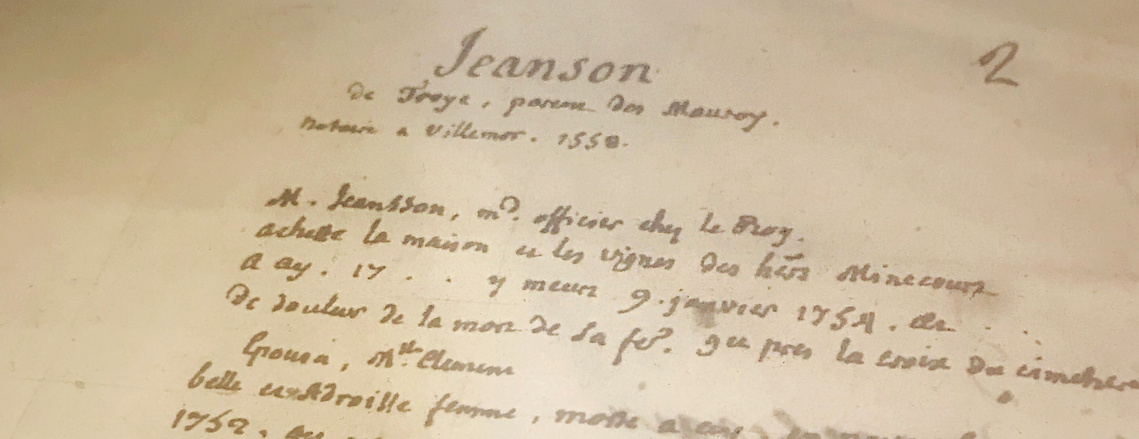 Jeanson 2
de Troye, parent des Mauroy.
Notaire a Villemor. 1550.
M. Jeansson, m.d officier chez le Roy.
achette la maison et les vignes des hérs Minecourt
a ay. 17 . . y meurt 9. janvier 1754.
de douleur de la mort de sa fe. pres la croix du cimetiere
M.lle Clement
belle et femme, morte a
1752.